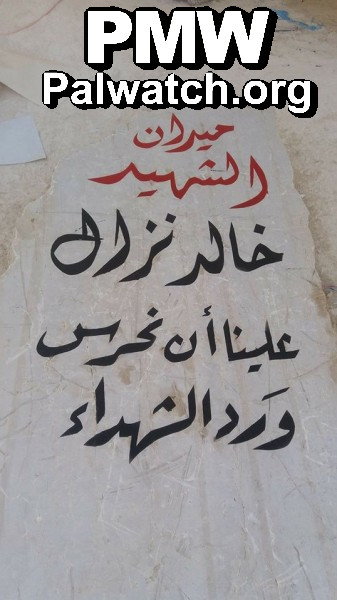 PMW
Palwatch.org
ميدان
الشهيد
خالد نزال
علينا أن نحرس
وَرد الشهداء